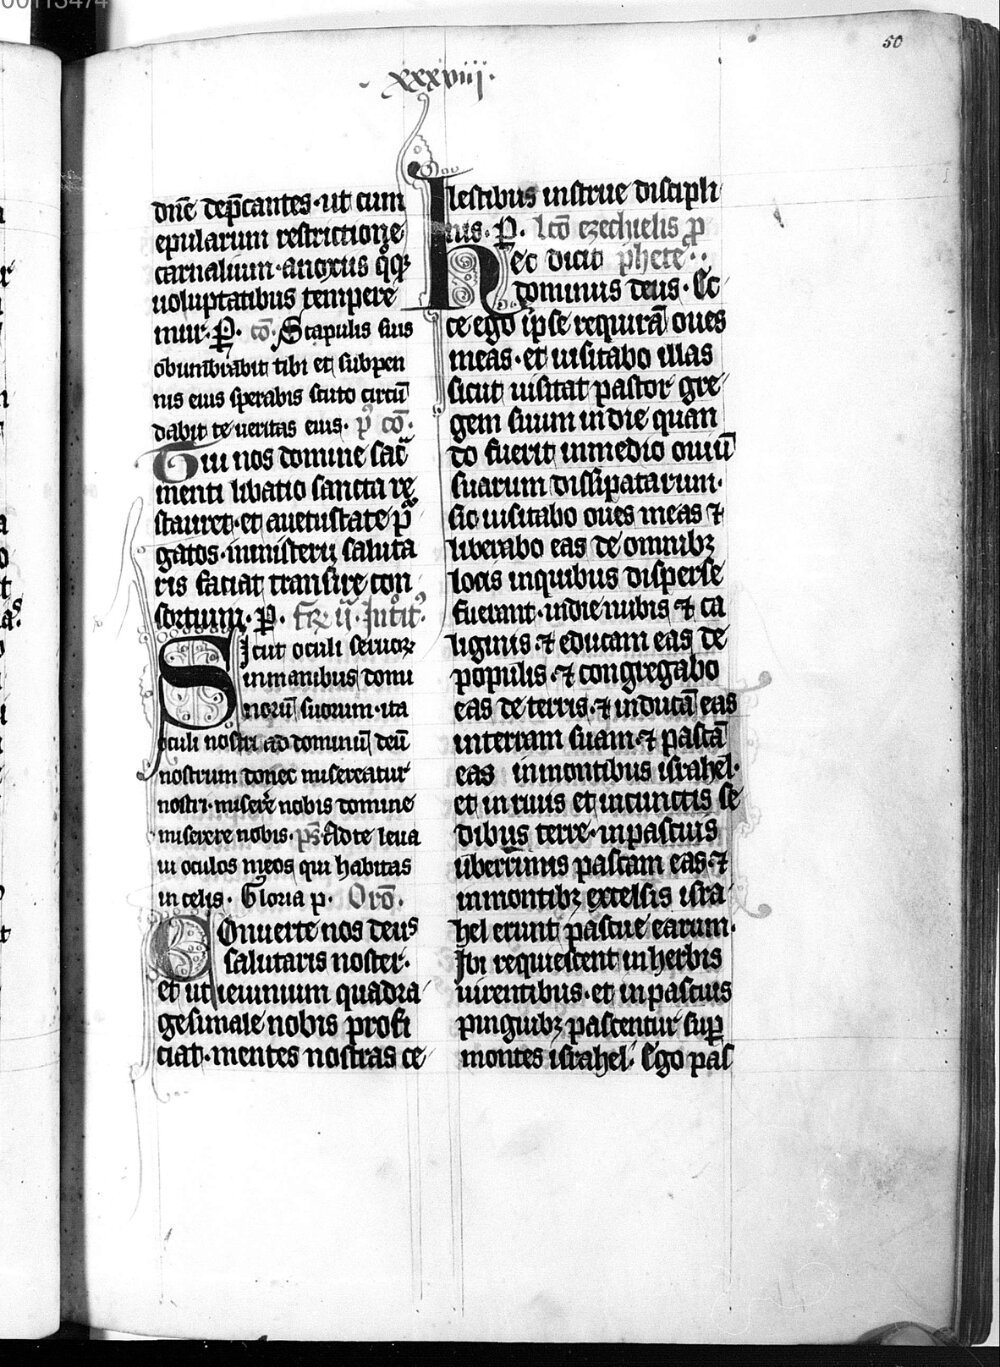 00113474
50
xxxviij
dn̄e dep̄cantes·ut cum
epularum restrictione
carnalium·a noxiis q̊q̊
uoluptatibus tempere
mur·P̱· co̅· Scapulis suis
obumbrabit tibi et sub pen
nis eius sperabis scuto circu̅
dabit te ueritas eius· p̊ co̅·
Tui nos domine sac̅
menti libatio sancta re
stauret·et a uetustate p̲
gatos·ministerii saluta
ris faciat transire con
sortium·P̱· fr̄ ij· Introit᷒·
Sicut oculi seruoꝝ
in manibus domi
noru̅ suorum·ita
oculi nostri ad dominu̅ deu̅
nostrum donec misereatur
nostri·misere nobis domine
miserere nobis·ps̄· Ad te leua
ui oculos meos qui habitas
in celis· Gloria p· Oro̅·
Conuerte nos deus
salutaris noster·
et ut ieiunium quadra
gesimale nobis profi
ciat·mentes nostras ce
lestibus instrue discipli
nis·P̱· lco̅ ezechielis p̲
Hec dicit phete·
dominus deus· Ec
ce ego ipse requira̅ oues
meas·et uisitabo illas
sicut uisitat pastor gre
gem suum in die quan
do fuerit in medio ouiu̅
suarum dissipatarum·
sic uisitabo oues meas ⁊
liberabo eas de omnibꝫ
locis in quibus disperse
fuerant·in die nubis ⁊ ca
liginis·⁊ educam eas de
populis·⁊ congregabo
eas de terris·⁊ induca̅ eas
in terram suam·⁊ pasca̅
eas in montibus israhel·
et in riuis et in cunctis se
dibus terre·in pascuis
uberrimis pascam eas·⁊
in montibꝫ excelsis isra
hel erunt pascue earum·
Ibi requiescent in herbis
uirentibus·et in pascuis
pinguibꝫ pascentur sup̲
montes israhel· Ego pas